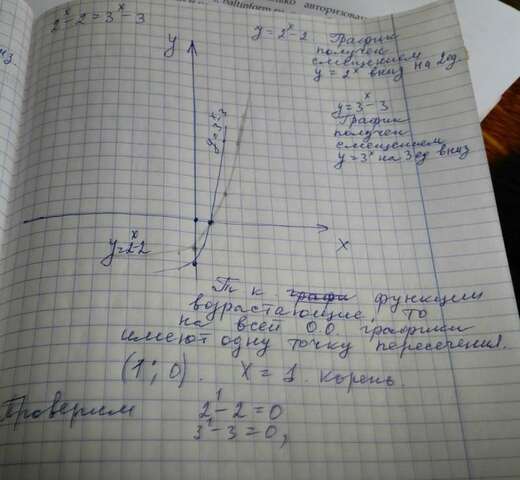 авторизова
baltinform.ru
2ˣ-2=3ˣ-3
y=2ˣ-2. График
получен
смещением
y=2ˣ вниз на 2ед.
y=3ˣ-3
График
получен
смещением
y=3ˣ на 3ед вниз
y
y=3ˣ-3
x
y=2ˣ-2
Т к функции
возрастающие, то
на всей О.О. графики
имеют одну точку пересечения.
(1; 0). x=1. корень
Проверим 2¹-2=0
3¹-3=0,